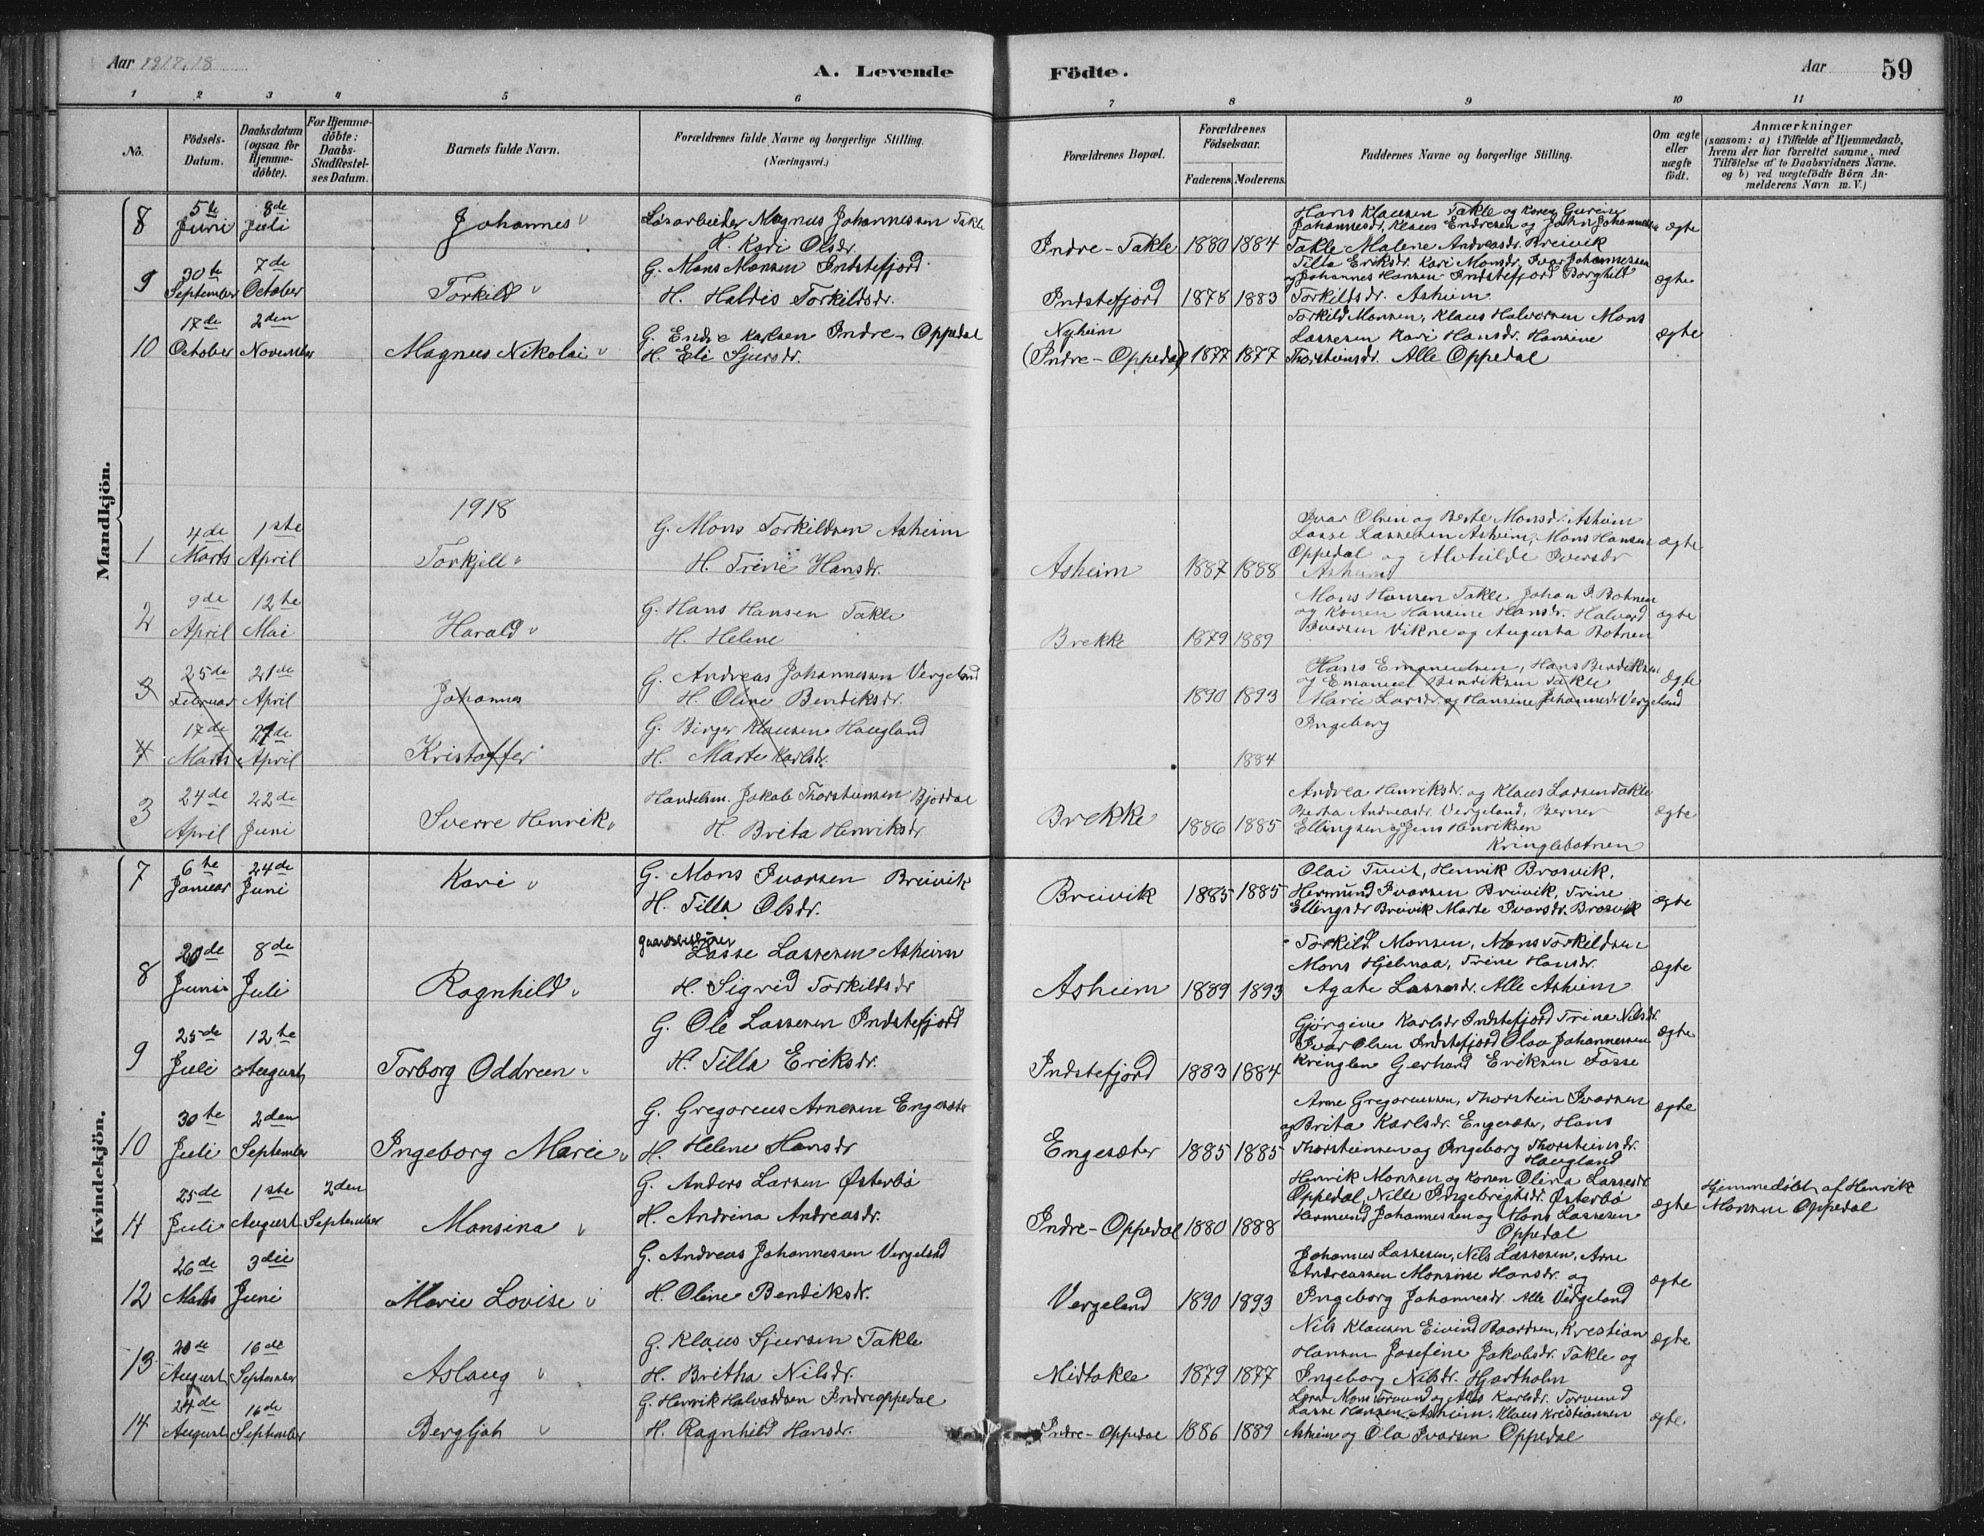 Aar 1917.18
A. Levende Födte.
Aar 59
1 2 3 4 5 6 7 8 9 10 11
No.
Födsels-Datum.
Daabsdatum (ogsaa for Hjemme-döbte).
For Hjemme-döbte: Daabs-Stadfæstel-ses Datum.
Barnets fulde Navn.
Forældrenes fulde Navne og borgerlige Stilling. (Næringsvei.)
Forældrenes Bopæl.
Forældrenes Födselsaar.
Faderens. Moderens.
Faddernes Navne og borgerlige Stilling.
Om ægte eller uægte födt.
Anmærkninger
(saasom: a) i Tilfælde af Hjemmedaab,
hvem der har forrettet samme, med
Tilföielse af to Daabsvidners Navne,
og b) ved uægtefödte Börn An-
melderens Navn m. V.)
Mandkjön.
8 5te Juni 8de Juli Johannes Løsarbeider Magnus Johannessen Takle
H. Kari Olsdr. Indre-Takle 1880 1884
Hans Klausen Takle og Kone Gurine
Johannesdr, Klaus Endresen og John Johannessen
Takle Malene Andreasdr. Breivik ægte
9 30te September 7de October Torkild G. Mons Monsen Indstefjord
H. Haldis Torkildsdr. Indstefjord 1878 1883
Tilla Eriksdr. Kari Monsdr, Ivar Johannessen
og Johannes Hansen Indstefjord Borghild
Torkildsdr. Asheim ægte
10 17de October 2den November Magnus Nikolai G. Endre Karlsen Indre-Oppedal
H. Eli Sjursdr. Nyheim (Indre-Oppedal) 1877 1877
Torkild Monsen, Klaus Halvorsen Mons
Lassesen Kari Hansdr. Hansine
Thorsteinsdr. Alle Oppedal ægte
1918
1 4de Marts 1ste April Torkjell G. Mons Torkildsen Asheim
H. Trine Hansdr. Asheim 1887 1888
Ivar Olsen og Berte Monsdr. Asheim
Lasse Lassesen Asheim, Mons Hansen
Oppedal og Alvhilde Iversdr
Asheim ægte
2 9de April 12te Mai Harald G. Hans Hansen Takle
H. Helene Brekke 1879 1889
Mons Hansen Takle Johan P. Botnen
og Konen Hansine Hansdr. Halvard
Iversen Vikne og Augusta Botnen ægte
3 25de Februar 21de April Johannes G. Andreas Johannessen Vergeland
H. Oline Bendiksdr. 1890 1893
Hans Emanuelsen, Hans Bendiksen
og Emanuel Bendiksen Takle
Marie Larsdr. og Hansine Johannesdr Vergeland ægte
4 17de Marts 21de April Kristoffer G. Birger Klausen Haugland
H. Marte Karlsdr. 1884
Ingeborg
3 24de April 22de Juni Sverre Henrik Handelsm. Jakob Thorsteinsen Bjordal
H. Brita Henriksdr Brekke 1886 1885
Andrea Henriksdr. og Klaus Larsen Takle
Bertha Andreasdr. Vergeland, Berner
Ellingsen og Jens Henriksen
Kringlebotnen ægte
Kvindekjön.
7 6te Januar 24de Juni Kari G. Mons Ivarsen Breivik
H. Tilla Olsdr. Breivik 1885 1885
Olai Tveit, Henrik Brosvik,
Hermund Ivarsen Breivik, Trine
Ellingsdr Breivik Marte Ivarsdr. Brosvik ægte
8 20de Juni 8de Juli Ragnhild Gaardbruger Lasse Lassesen Asheim
H. Sigrid Torkildsdr Asheim 1889 1893
Torkild Monsen, Mons Torkildsen
Mons Hjelmaa, Trine Hansdr.
Agate Lassesdr. Alle Asheim ægte
9 25de Juli 12te August Torborg Oddrun G. Ole Lassesen Indstefjord
H. Tilla Eriksdr. Indstefjord 1883 1884
Gjørgine Karlsdr Indstefjord Trine Nilsdr.
Ivar Olsen Indstefjord Olav Johannessen
Kringlen Gerhard Eriksen Fosse ægte
10 30te Juli 2den September Ingeborg Marie G. Gregorius Arnesen Engesæter
H. Helene Hansdr Engesæter 1885 1885
Arne Gregoriussen, Thorstein Ivarsen
og Brita Karlsdr. Engesæter, Hans
Thorsteinsen og Ingeborg Thorsteinsdr.
Haugland ægte
11 25de Juli 1ste August 2den September Monsina G. Anders Larsen Østerbø
H. Andrina Andreasdr. Indre-Oppedal 1880 1888
Henrik Monsen og Konen Olina Lassesdr.
Oppedal, Nille Ingebrigtsdr. Østerbø
Hermund Johannessen og Mons Lassesen
Oppedal ægte
Hjemmedøbt af Henrik
Monsen Oppedal
12 26de Marts 3die Juni Marie Lovise G. Andreas Johannessen Vergeland
H. Oline Bendiksdr. Vergeland 1890 1893
Johannes Lassesen, Nils Lassesen, Arne
Andreassen Monsine Hansdr. og
Ingeborg Johannesdr. Alle Vergeland ægte
13 20de August 16de September Aslaug G. Klaus Sjursen Takle
H. Britha Nilsdr. Midtakle 1879 1877
Nils Klausen Eivind Baardsen, Kristian
Hansen Josefine Jakobsdr. Takle og
Ingeborg Nilsdr. Hjartholm ægte
14 24de August 16de September Bergljot G. Henrik Halvordsen Indreoppedal
H. Ragnhild Hansdr. Indre-Oppedal 1886 1889
Mons Torvund og Karlsdr. Torvund
Lasse Hansen Asheim, Klaus Kristiansen
Asheim og Ola Ivarsen Oppedal ægte